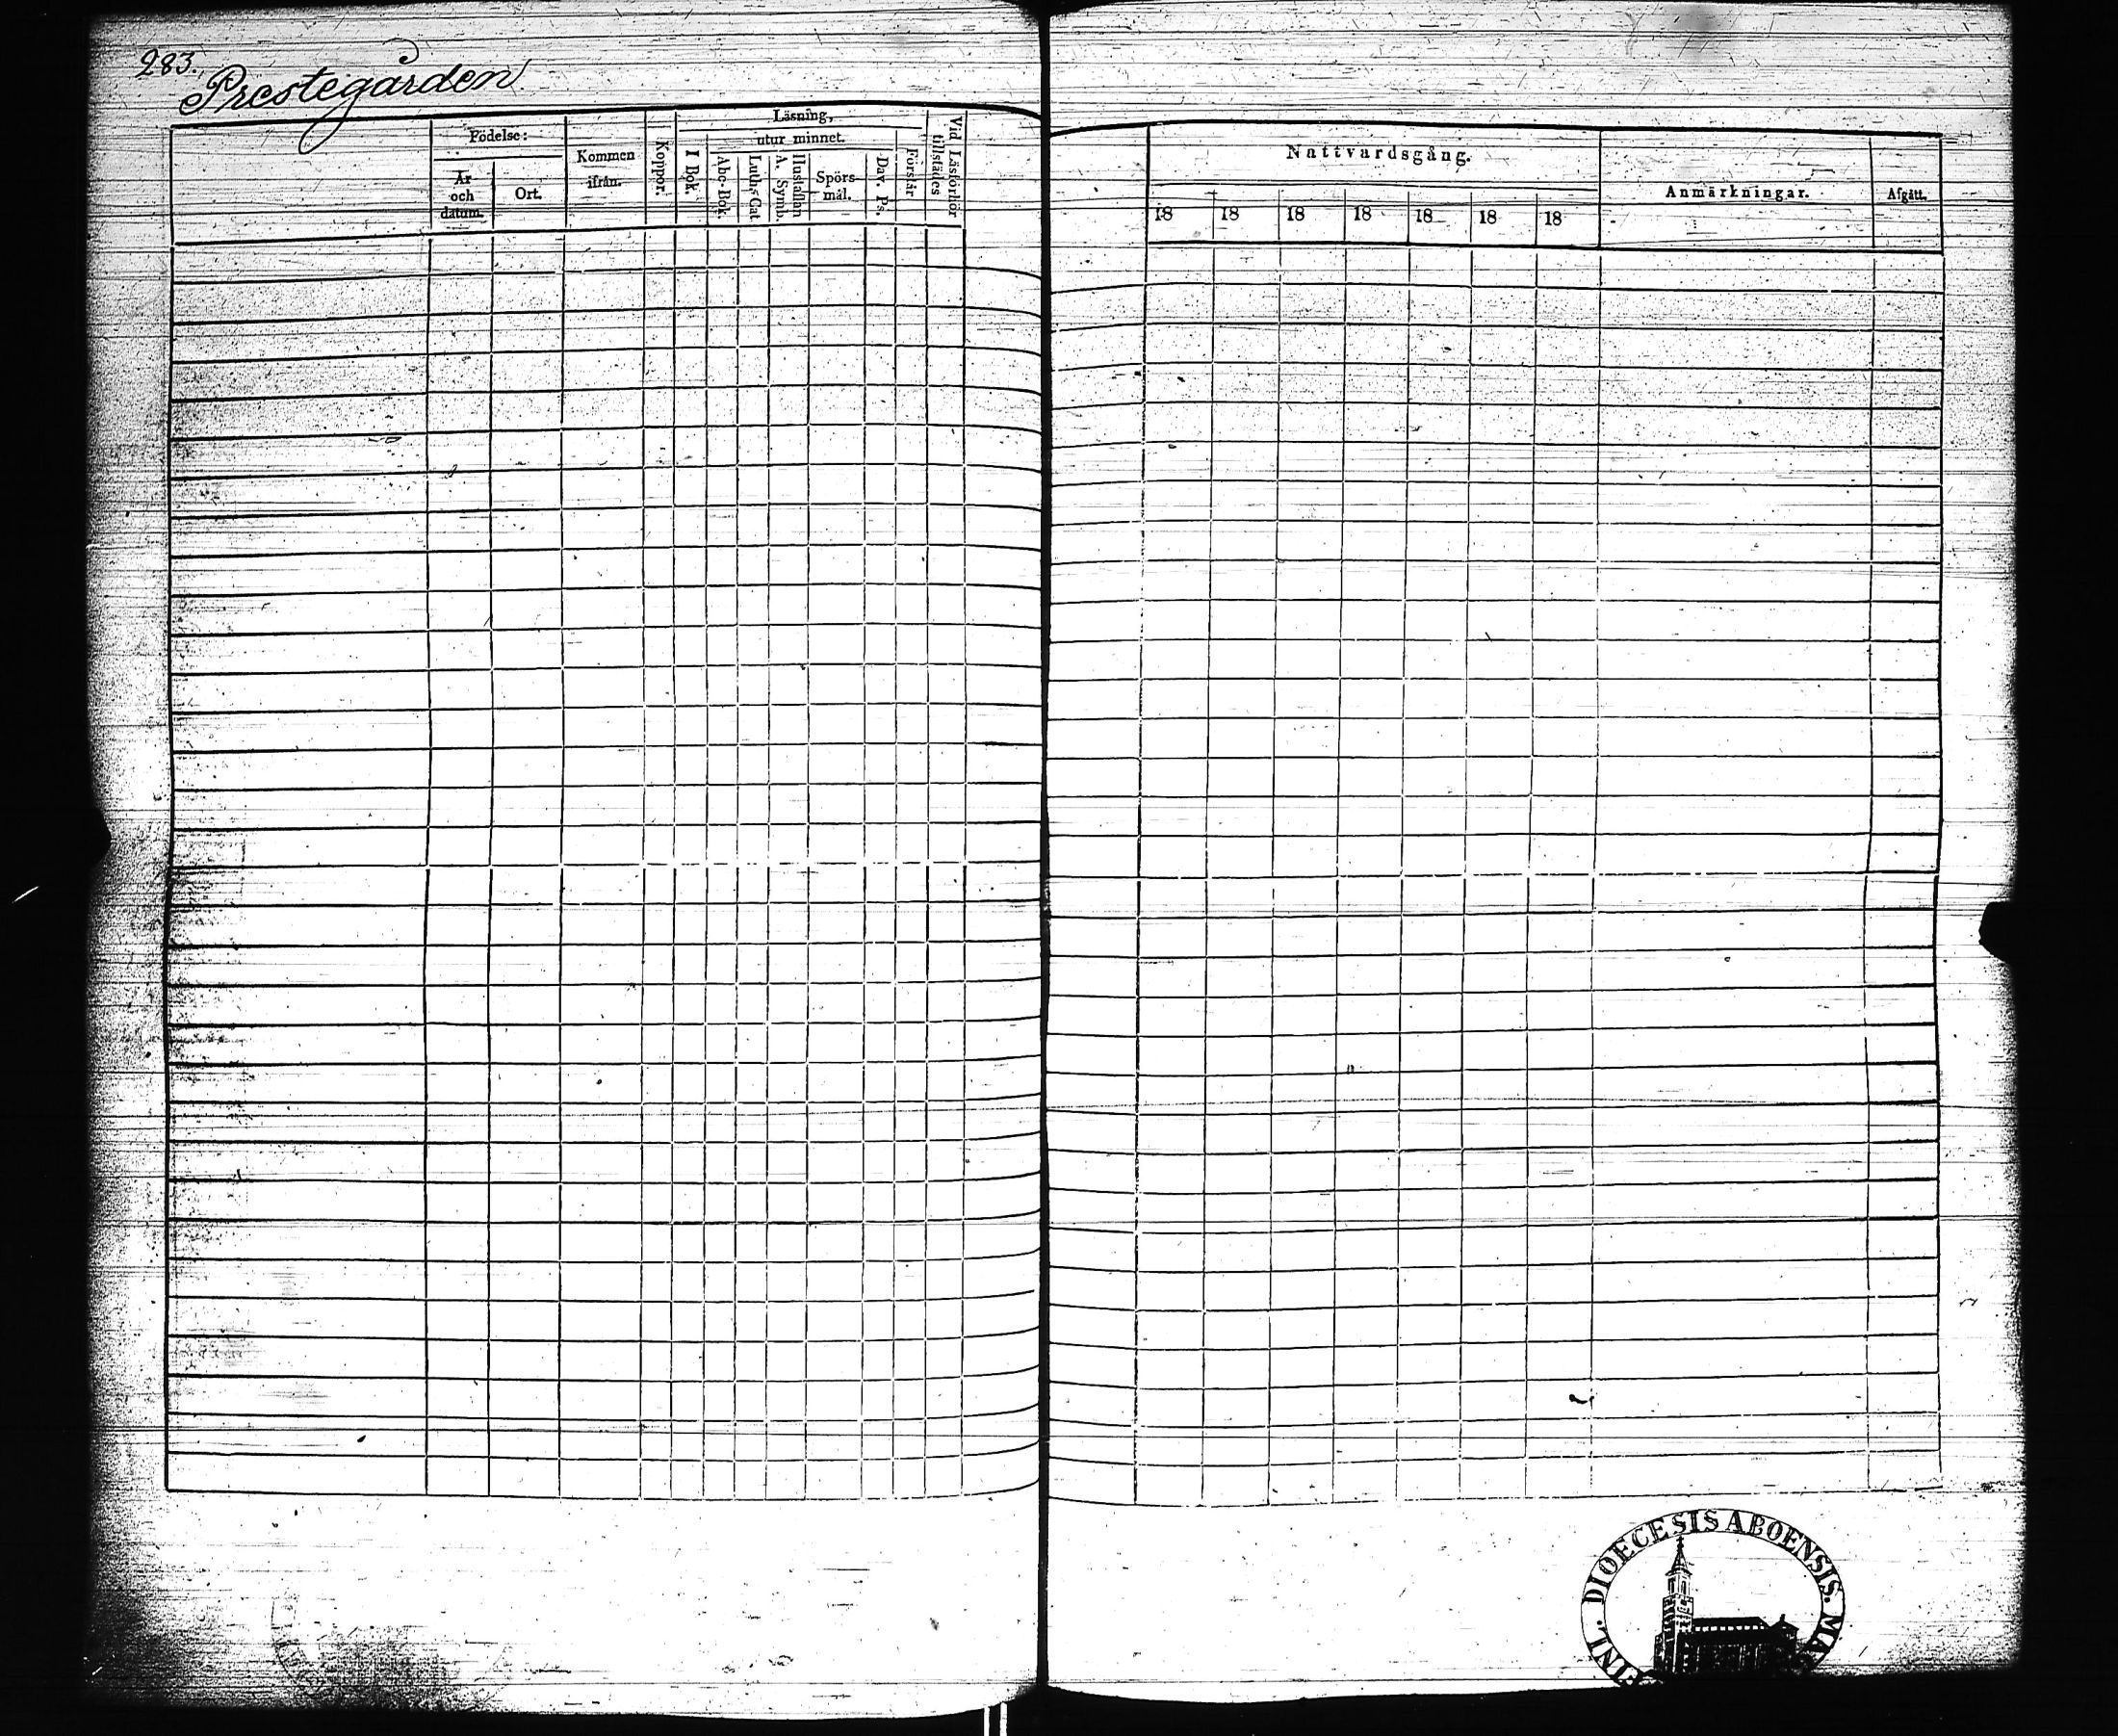 283.
Prestegården
Födelse:
År och datum.
Ort.
Kommen ifrån.
Koppor.
Läsning,
utur minnet.
I Bok.
Abc-Bok.
Luth. Cat.
Hustaflan
A. Symb.
Spörs-
mål.
Dav. Ps.
Förstår
Vid Läsförhör
tillstädes
Nattvardsgång.
18 18 18 18 18 18 18
Anmärkningar.
Afgått.
DIOECESIS ABOENSIS.